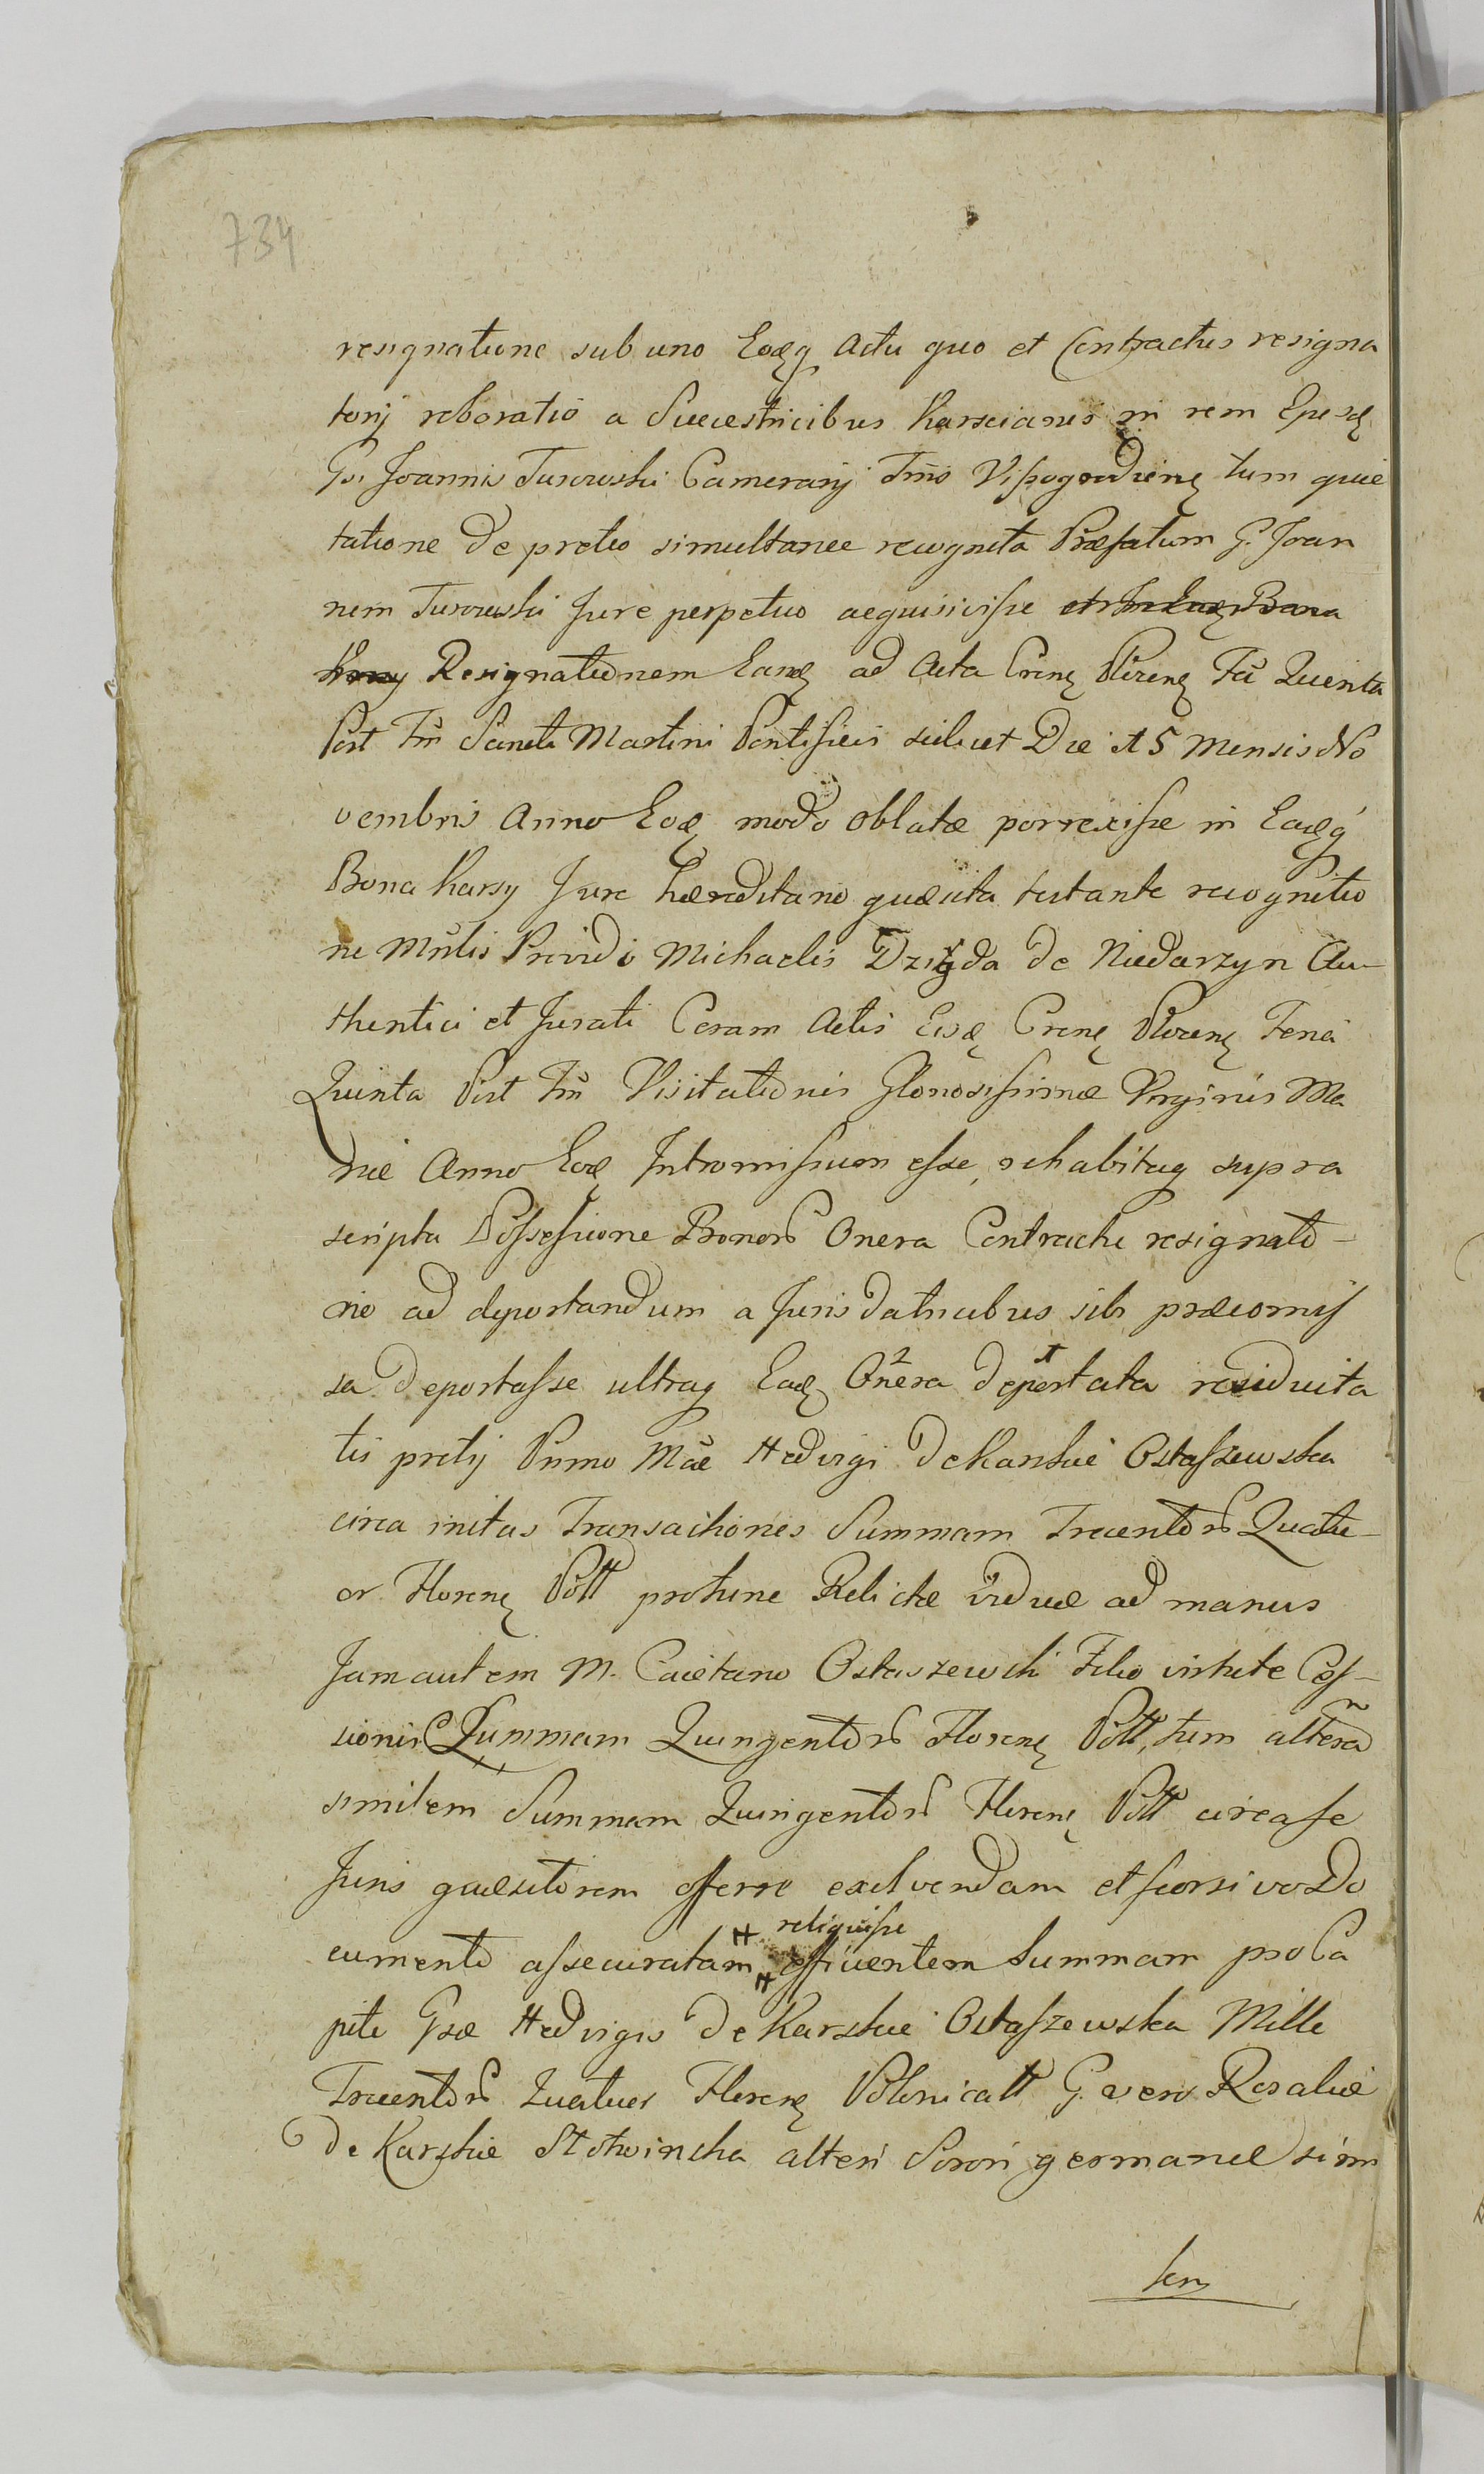 734
resignatione sub uno Eodęq Actu quo et Contractus resigna
torij roboratio a Succestricibus Karscianis in rem Ejusdę
Gi Joannis Turowski Camerarij Trńs Vissogrodienę tum quie
tatione de pretio simultanee recognita Præfatum G. Joan
nem Turowski Jure perpetuo acquisivisse
Resignationem Eandę ad Acta Crenę Plocenę Fã Quinta
Post Fm̃ Sancti Martini Pontificis scilicet Die 15 Mensis No
vembris Anno Eodę modo Oblatæ porrexisse in Eadęq
Bona Karsy Jure hæreditario quæsita testante recognitio
ne Mnlis Providi Michaelis Dzięda de Niedarzyn Au-
thentici et Jurati Coram Actis Eisdę Crenę Plocenę Feria
Quinta Post Fm̃ Visitationis Gloriosissimæ Virginis Ma
riæ Anno Eodę Intromissum esse, rehabitaq supra
scripta Possessione Bonorũ Onera Contractu resignato-
rio ad deportandum a Juris datricibus sibi præcomis
sa deportasse ultraq Eadę Onera deportata residuita
tis pretij Primo Mæ Hedvigi De Karskie Ostaszewska
circa initas Transactiones Summam Trecentorũ Quatu-
or Florenę Poll protunc Relictæ viduæ ad manus
Jam autem M. Caietano Ostaszewski Filio virtute Ces-
sionis Summam Quingentorũ Florenę Poll, tum alterã
similem Summam Quingentorũ Florenę Poll circa se
Juris quæsitorem offerre exolvendam et seorsivo Do
cumento assecuratam reliquisse efficientem Summam pro Ca
pite Gsæ Hedvigis de Karskie Ostaszewska Mille
Trecentorũ Quatuor Florenę Polonicall G. vero Rosaliæ
de Karskie Slotwinska alteri Sorori germanæ sim